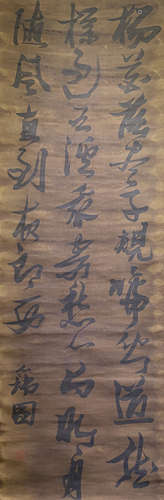 楊花落盡子規啼聞道龍
標過五溪我寄愁心與明月
隨風直到夜郎西 瑞圖